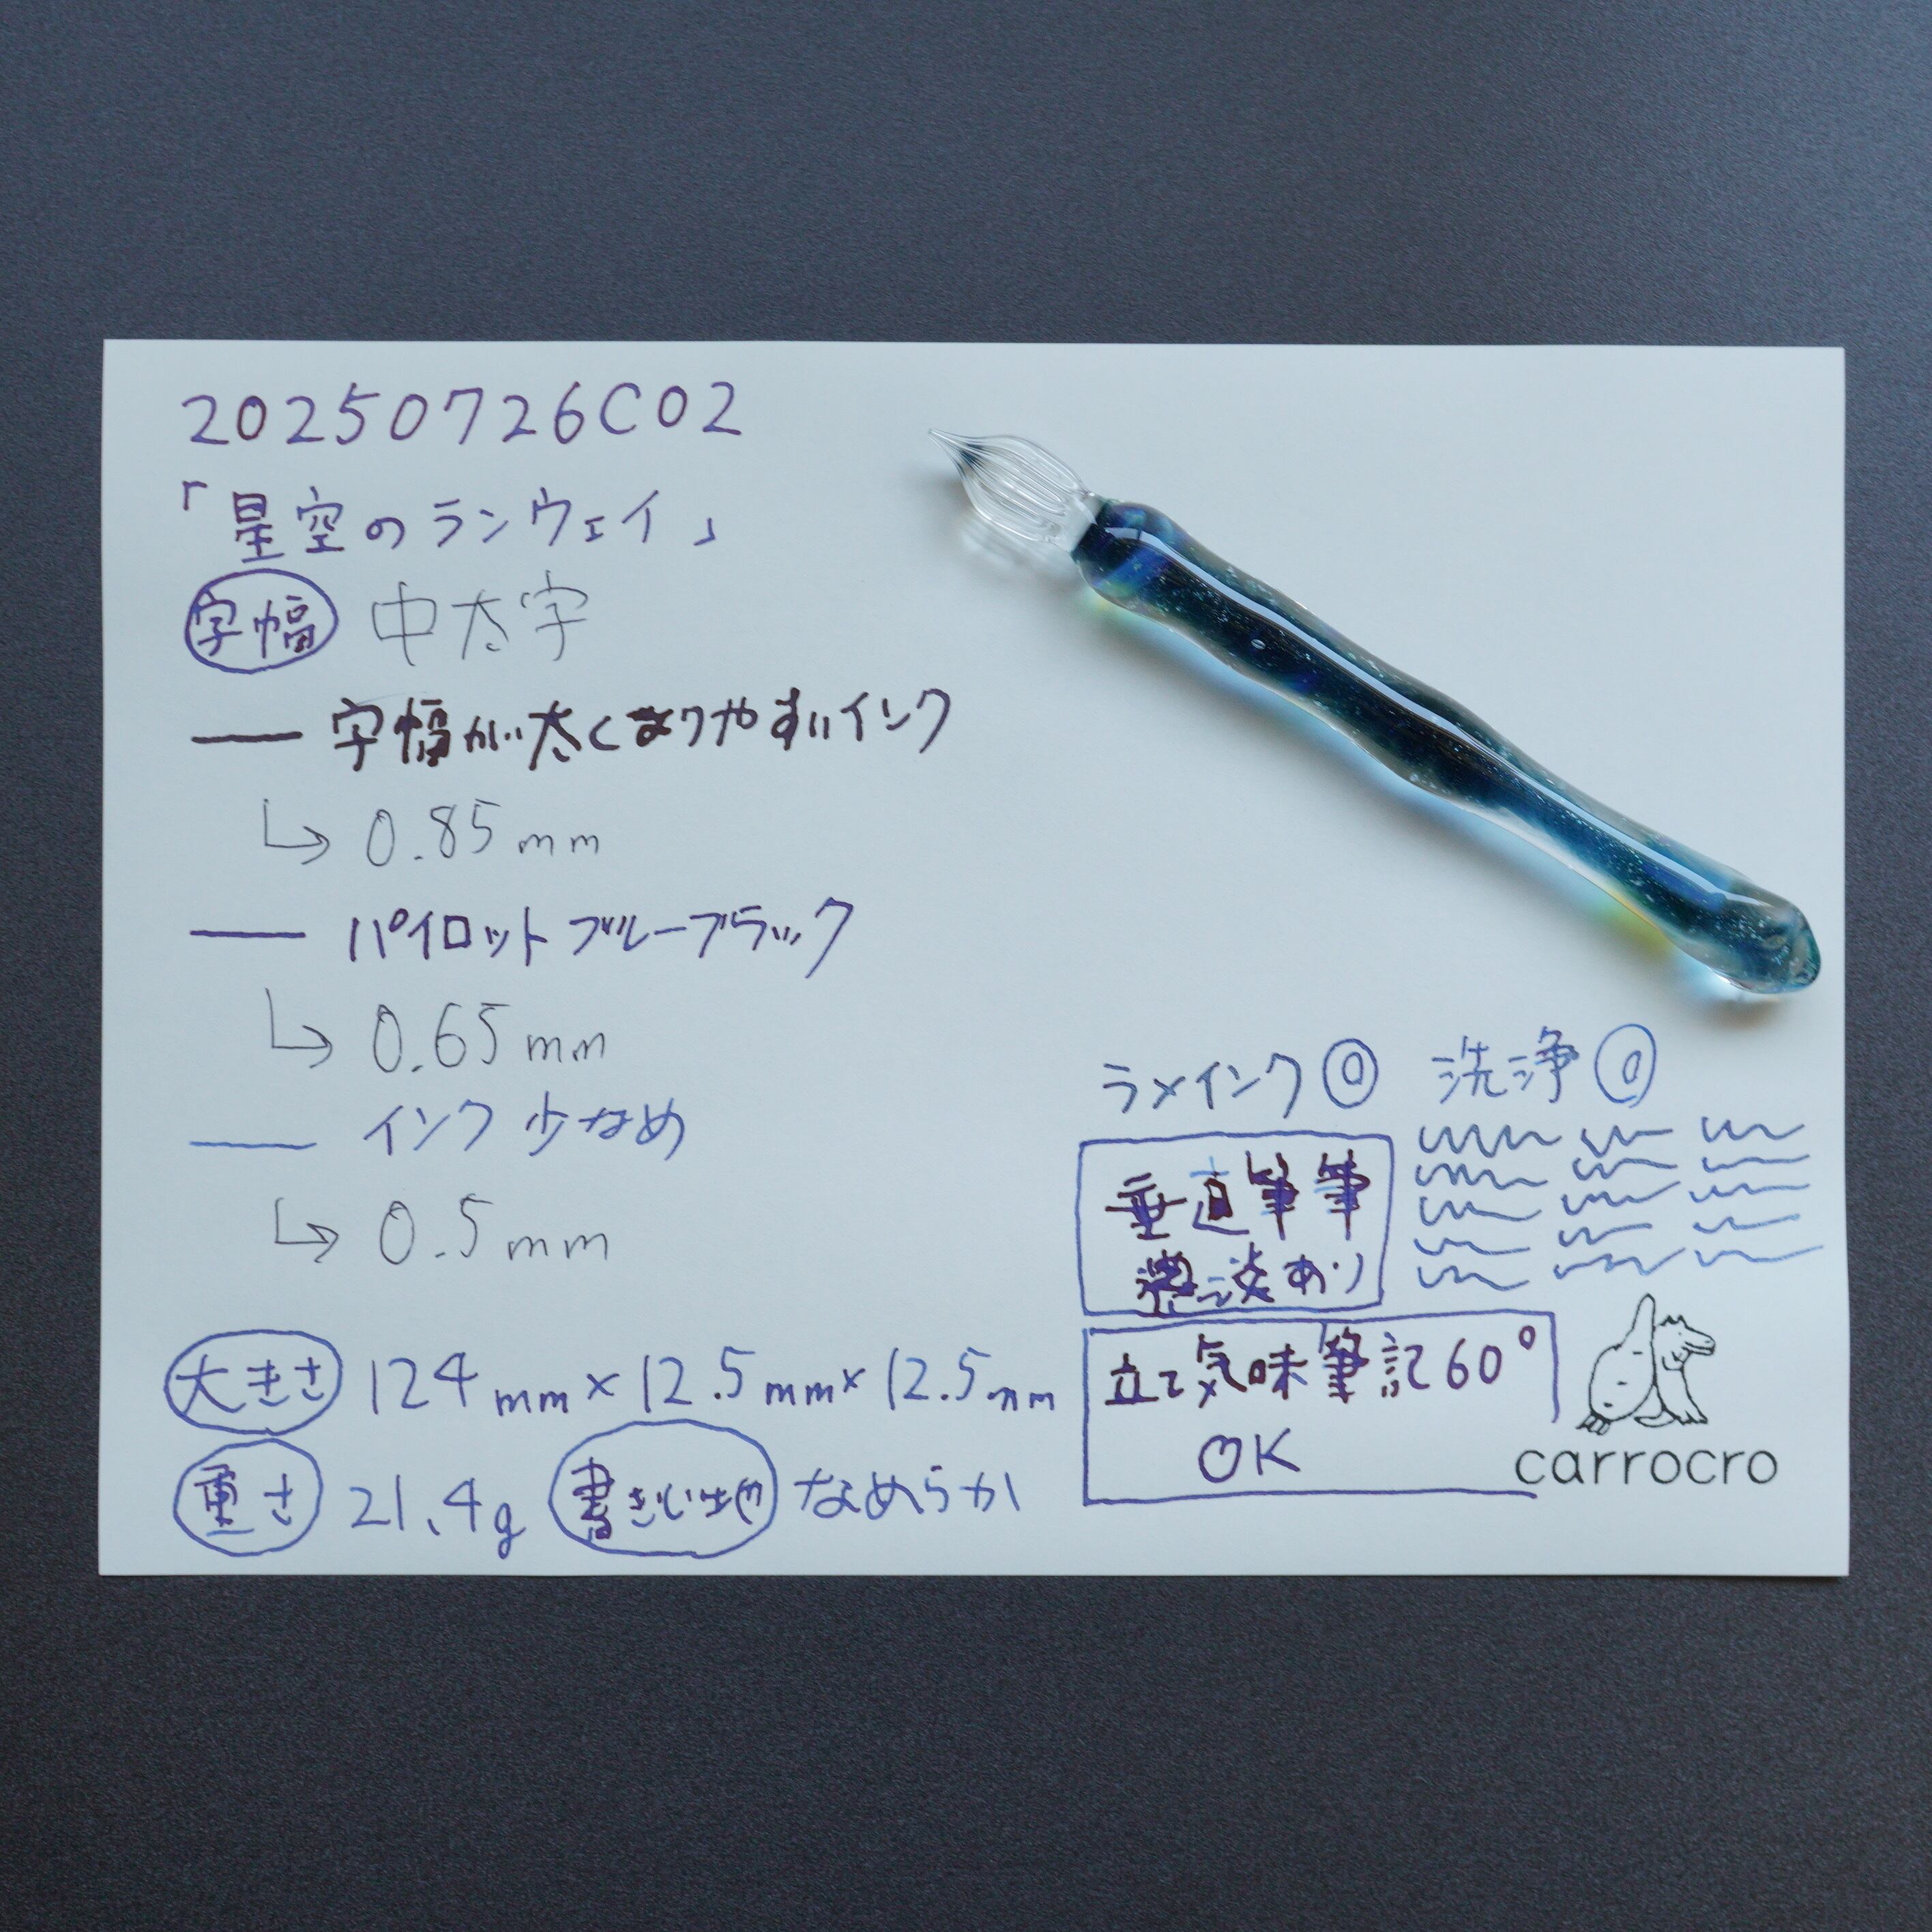 20250726C02
「星空のランウェイ」
字幅 中太字
字幅が太くなりやすいインク
0.85mm
パイロットブルーブラック
0.65mm
インク少なめ
0.5mm
大きさ 124mm×12.5mm×12.5mm
重さ 21.4g 書きい出や なめらか
ラメインク◎ 洗浄◎
垂直筆筆
濃淡あり
立て気味筆記60°
OK
carrocro